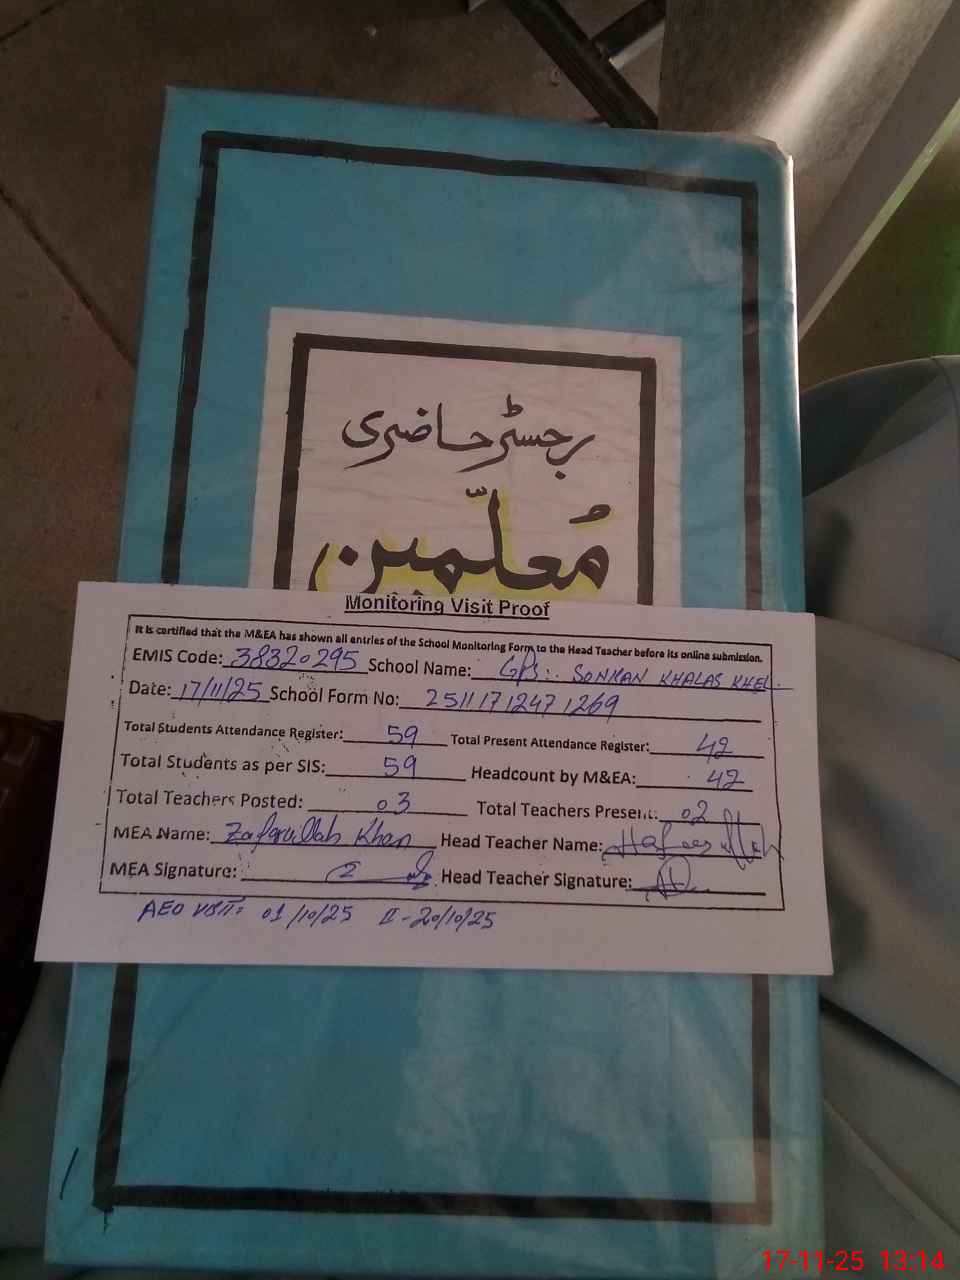 رجسٹر حاضری
معلّمین
Monitoring Visit Proof
It is certified that the M&EA has shown all entries of the School Monitoring Form to the Head Teacher before its online submission.
EMIS Code: 38320295 School Name: GPS: SONMAN KHALAS KHEL
Date: 17/11/25 School Form No: 2511171247 1269
Total Students Attendance Register: 59 Total Present Attendance Register: 42
Total Students as per SIS: 59 Headcount by M&EA: 42
Total Teachers Posted: 03 Total Teachers Present: 02
MEA Name: Zafarullah Khan Head Teacher Name:
MEA Signature: Head Teacher Signature:
AEO VISIT: 01/10/25 II - 20/10/25
17-11-25 13:14